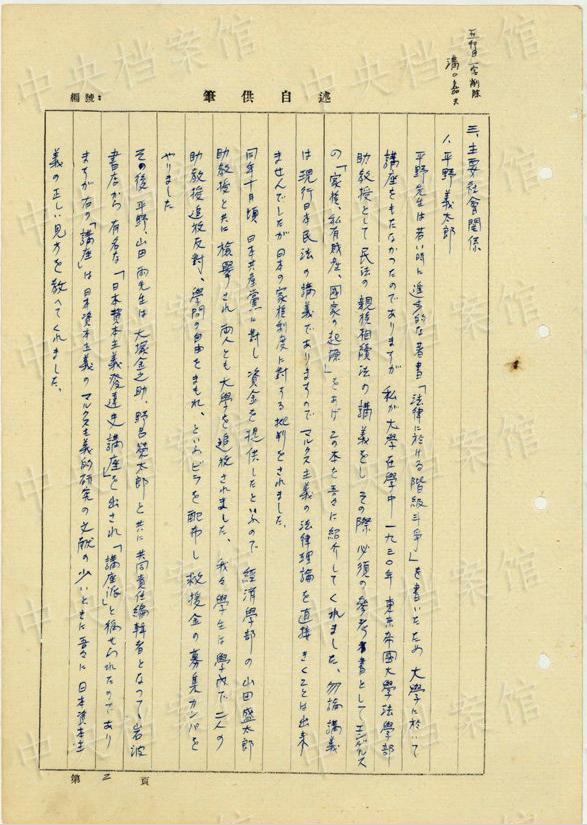 五行目一字削除
溝口嘉夫
述自供筆
編號：
三、主要社會関係
1. 平野義太郎
平野先生は若い時に進歩的な著書「法律に於ける階級斗争」を書いたため 大學に於いて
講座をもたなかつたのでありますが 私が大學在學中 一九三〇年 東京帝國大學法學部
助教授として 民法の親族相續法の講義をし その際 必須の參考書としてエンゲルス
の「家族、私有財産、國家の起源」をあげ この本を吾々に紹介してくれました、勿論講義
は現行日本民法の講義でありますのでマルクス主義の法律理論を直接きくことは出来
ませんでしたが日本の家族制度に対する批判をされました。
同年十月頃 日本共産黨に對し 資金を提供したといふので 經済學部の山田盛太郎
助教授と共に檢擧され 両人とも大學を追放されました、我々學生は學内で二人の
助教授追放反対、學問の自由をまもれ、といふビラを配布し 救援金の募集カンパを
やりました
その後 平野、山田両先生は 大塚金之助、野呂榮太郎と共に 共同責任編輯者となつて、岩波
書店から 有名な「日本資本主義發達史講座」を出され「講座派」と稱せられたのであり
ますが右の「講座」は日本資本主義のマルクス主義的研究の文献の少いときに吾々に日本資本主
義の正しい見方を敎へてくれました、
第 二 頁
中央档案馆